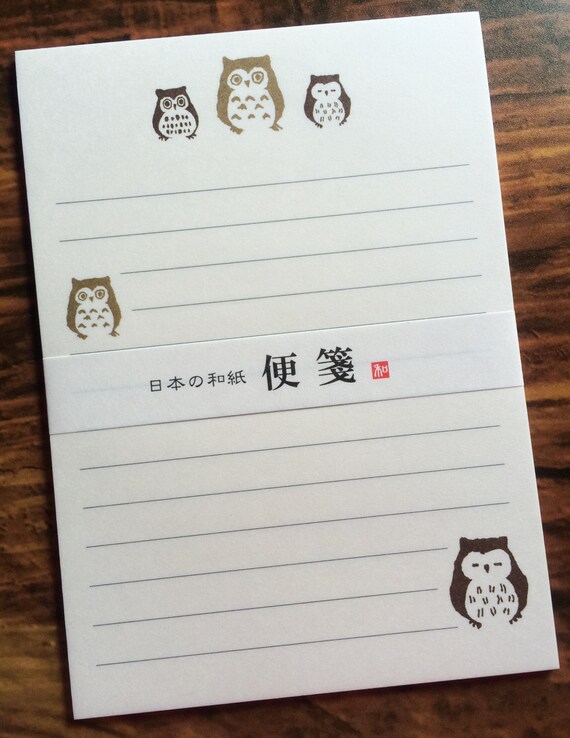 日本の和紙 便箋 和